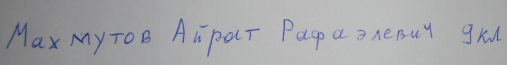 Махмутов Айрат Рафаэлевич 9кл